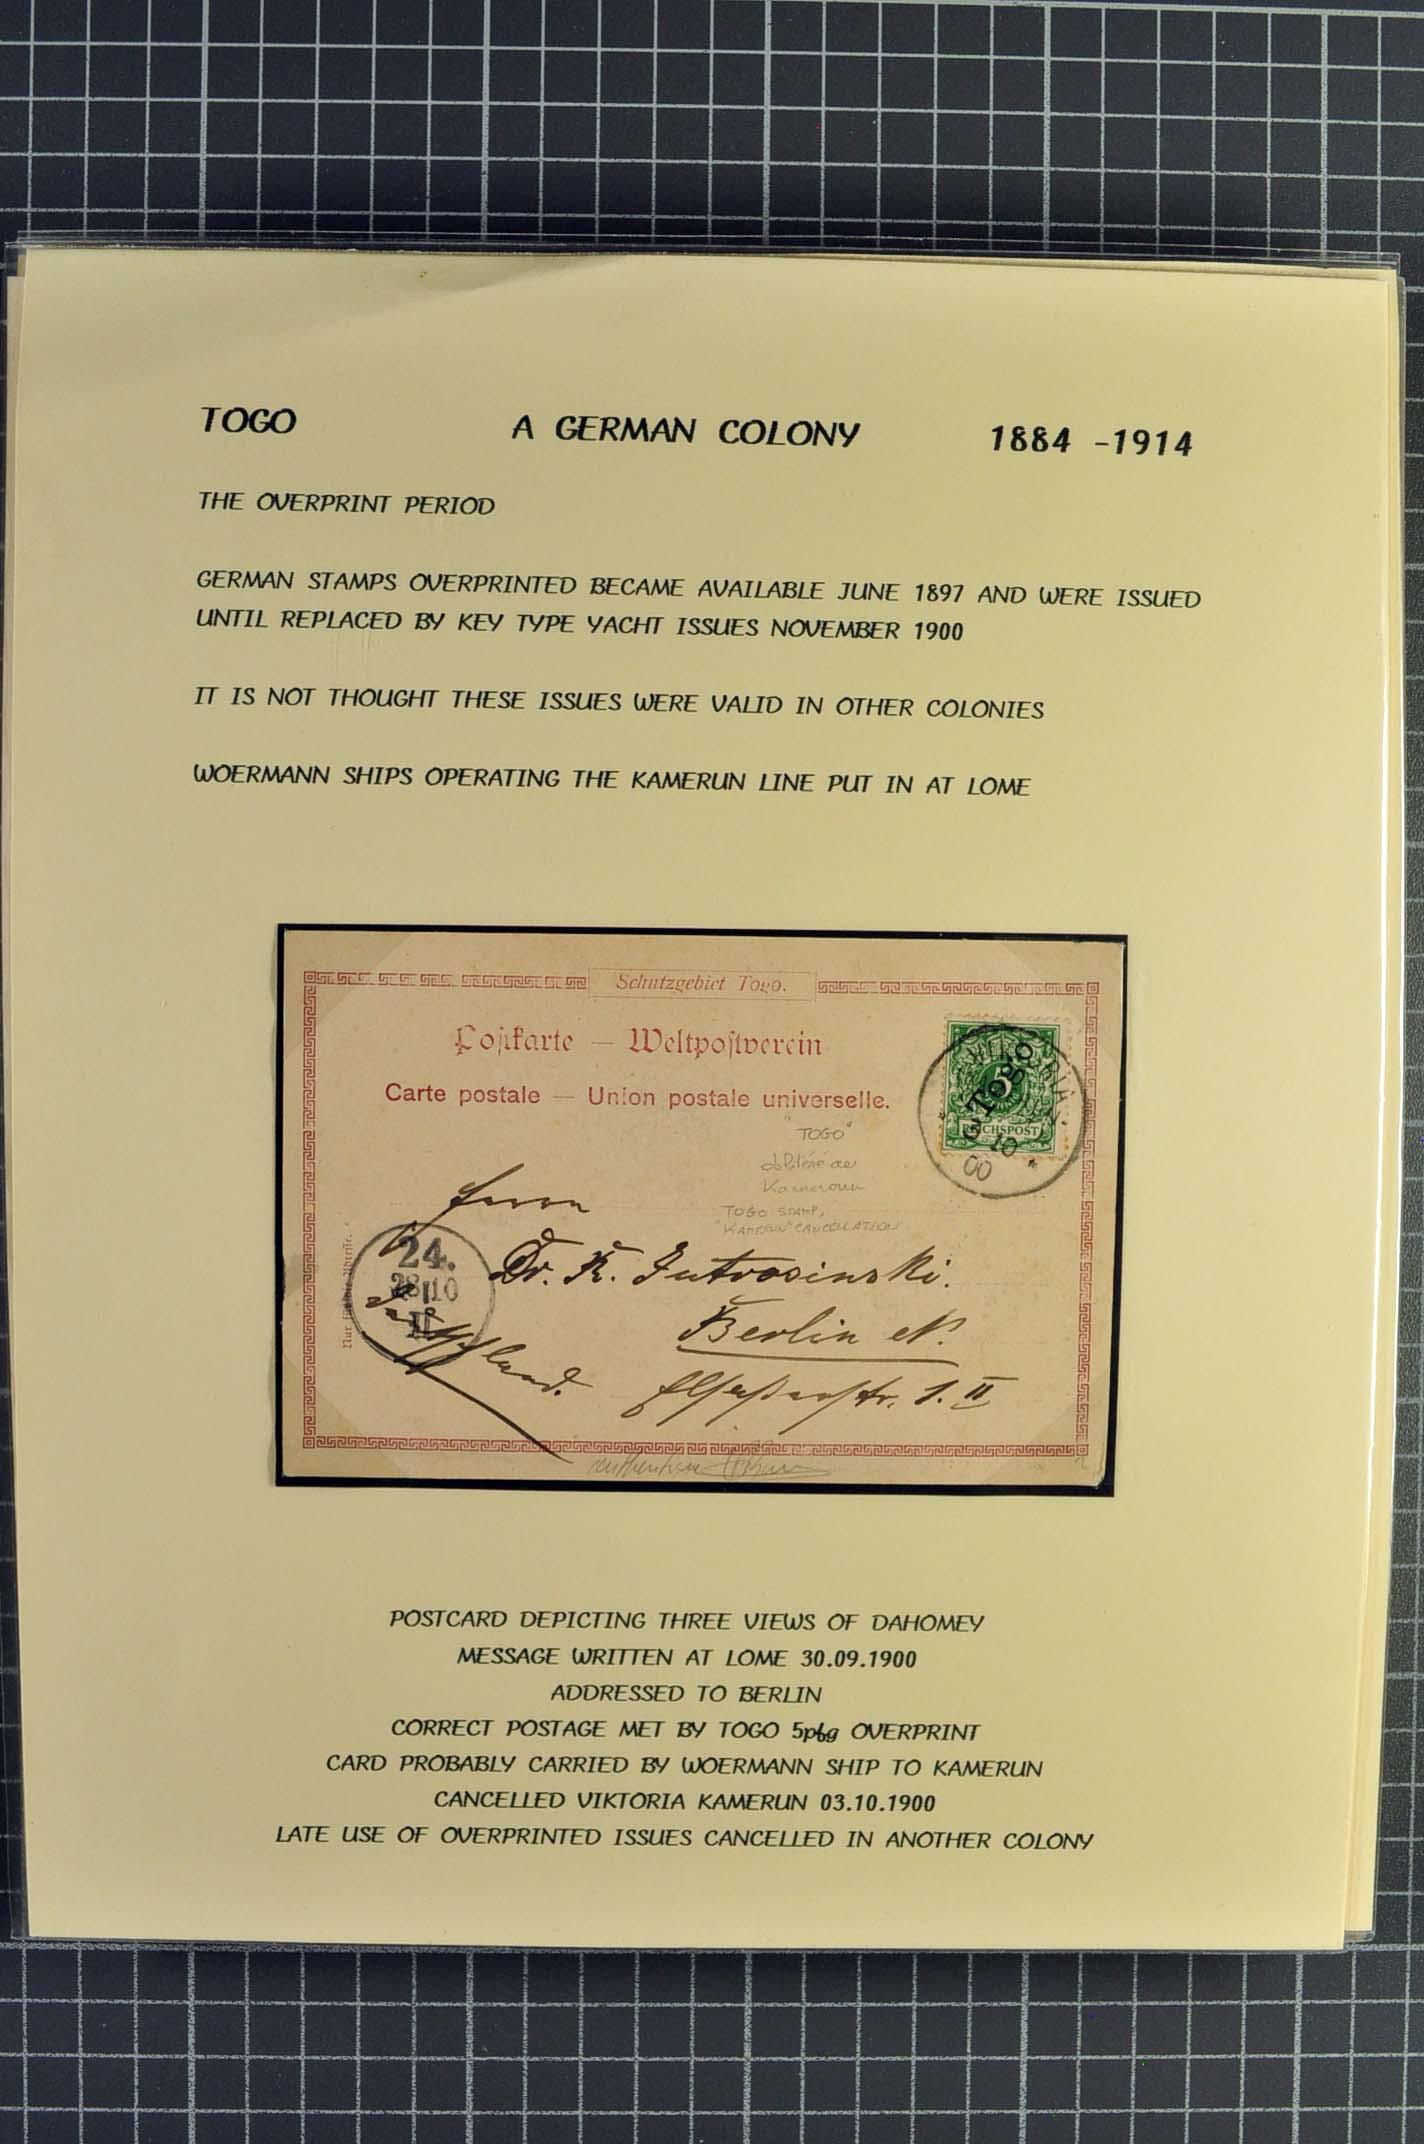 TOGO A GERMAN COLONY 1884 -1914
THE OVERPRINT PERIOD
GERMAN STAMPS OVERPRINTED BECAME AVAILABLE JUNE 1897 AND WERE ISSUED
UNTIL REPLACED BY KEY TYPE YACHT ISSUES NOVEMBER 1900
IT IS NOT THOUGHT THESE ISSUES WERE VALID IN OTHER COLONIES
WOERMANN SHIPS OPERATING THE KAMERUN LINE PUT IN AT LOME
Schutzgebiet Togo.
Postkarte — Weltpostverein
Carte postale — Union postale universelle.
Togo
REICHSPOST
3 10
00
"TOGO"
oblitéré au
Kameroun
TOGO STAMP,
"KAMERUN" CANCELLATION
Herrn
Dr. K. Jutrosinski.
Berlin N.
Elsasserstr. 1. II
24.
28 10
II
Nur für die Adresse.
POSTCARD DEPICTING THREE VIEWS OF DAHOMEY
MESSAGE WRITTEN AT LOME 30.09.1900
ADDRESSED TO BERLIN
CORRECT POSTAGE MET BY TOGO 5pfg OVERPRINT
CARD PROBABLY CARRIED BY WOERMANN SHIP TO KAMERUN
CANCELLED VIKTORIA KAMERUN 03.10.1900
LATE USE OF OVERPRINTED ISSUES CANCELLED IN ANOTHER COLONY